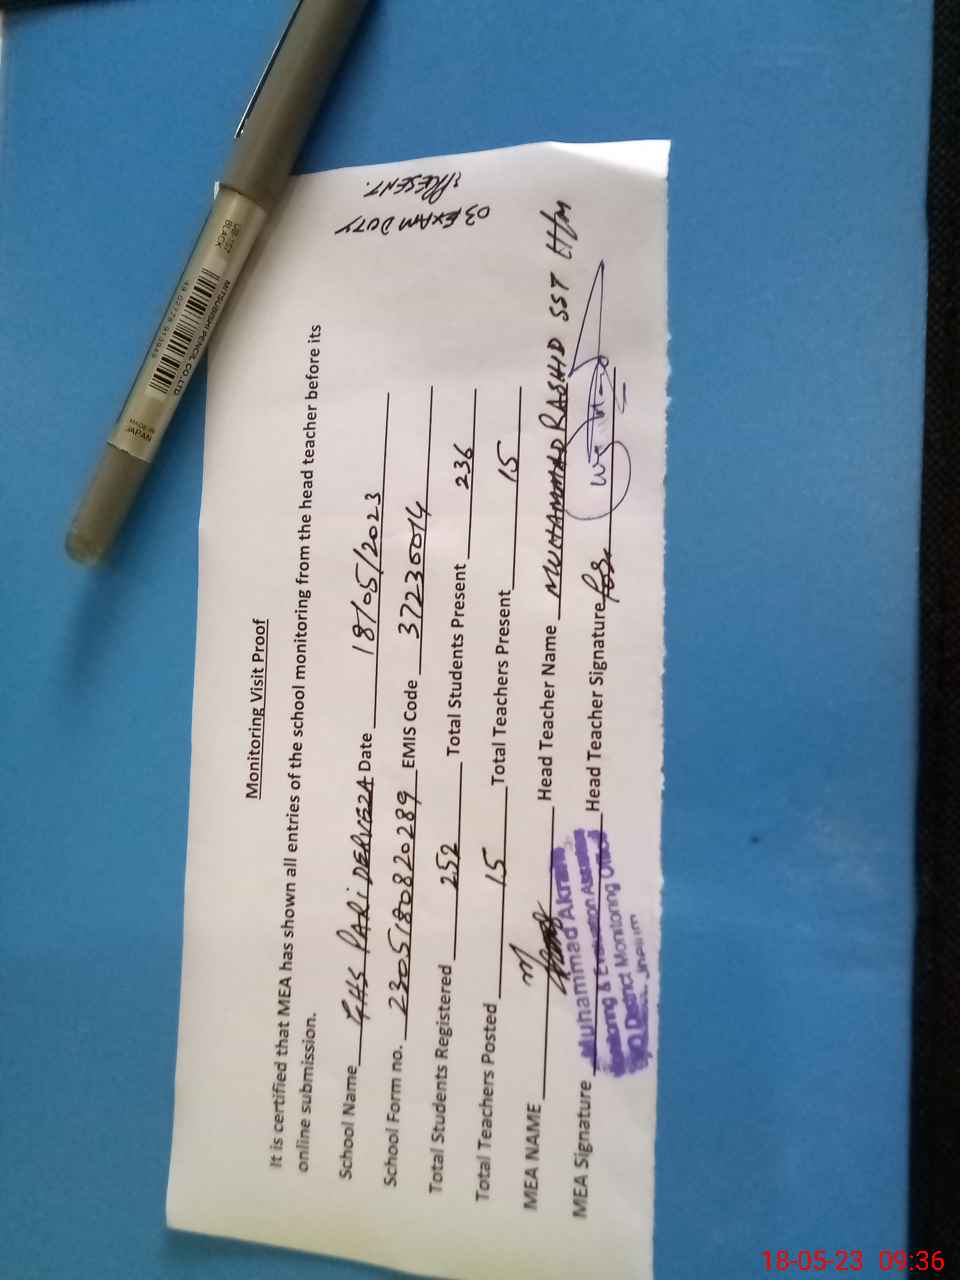 Monitoring Visit Proof
It is certified that MEA has shown all entries of the school monitoring from the head teacher before its
online submission.
School Name GHS PARI DERVEZA Date 18/05/2023
School Form no. 2305180820289 EMIS Code 37230014
Total Students Registered 252 Total Students Present 236
Total Teachers Posted 15 Total Teachers Present 15
MEA NAME Head Teacher Name MUHAMMAD RASHID SST H/M
MEA Signature Head Teacher Signature for
Muhammad Akram
Monitoring & Evaluation Assistant
O/O District Monitoring Officer
Jhelum
03 EXAM DUTY
PRESENT.
UB-157
BLACK
MITSUBISHI PENCIL CO.,LTD
MADE IN
JAPAN
18-05-23 09:36